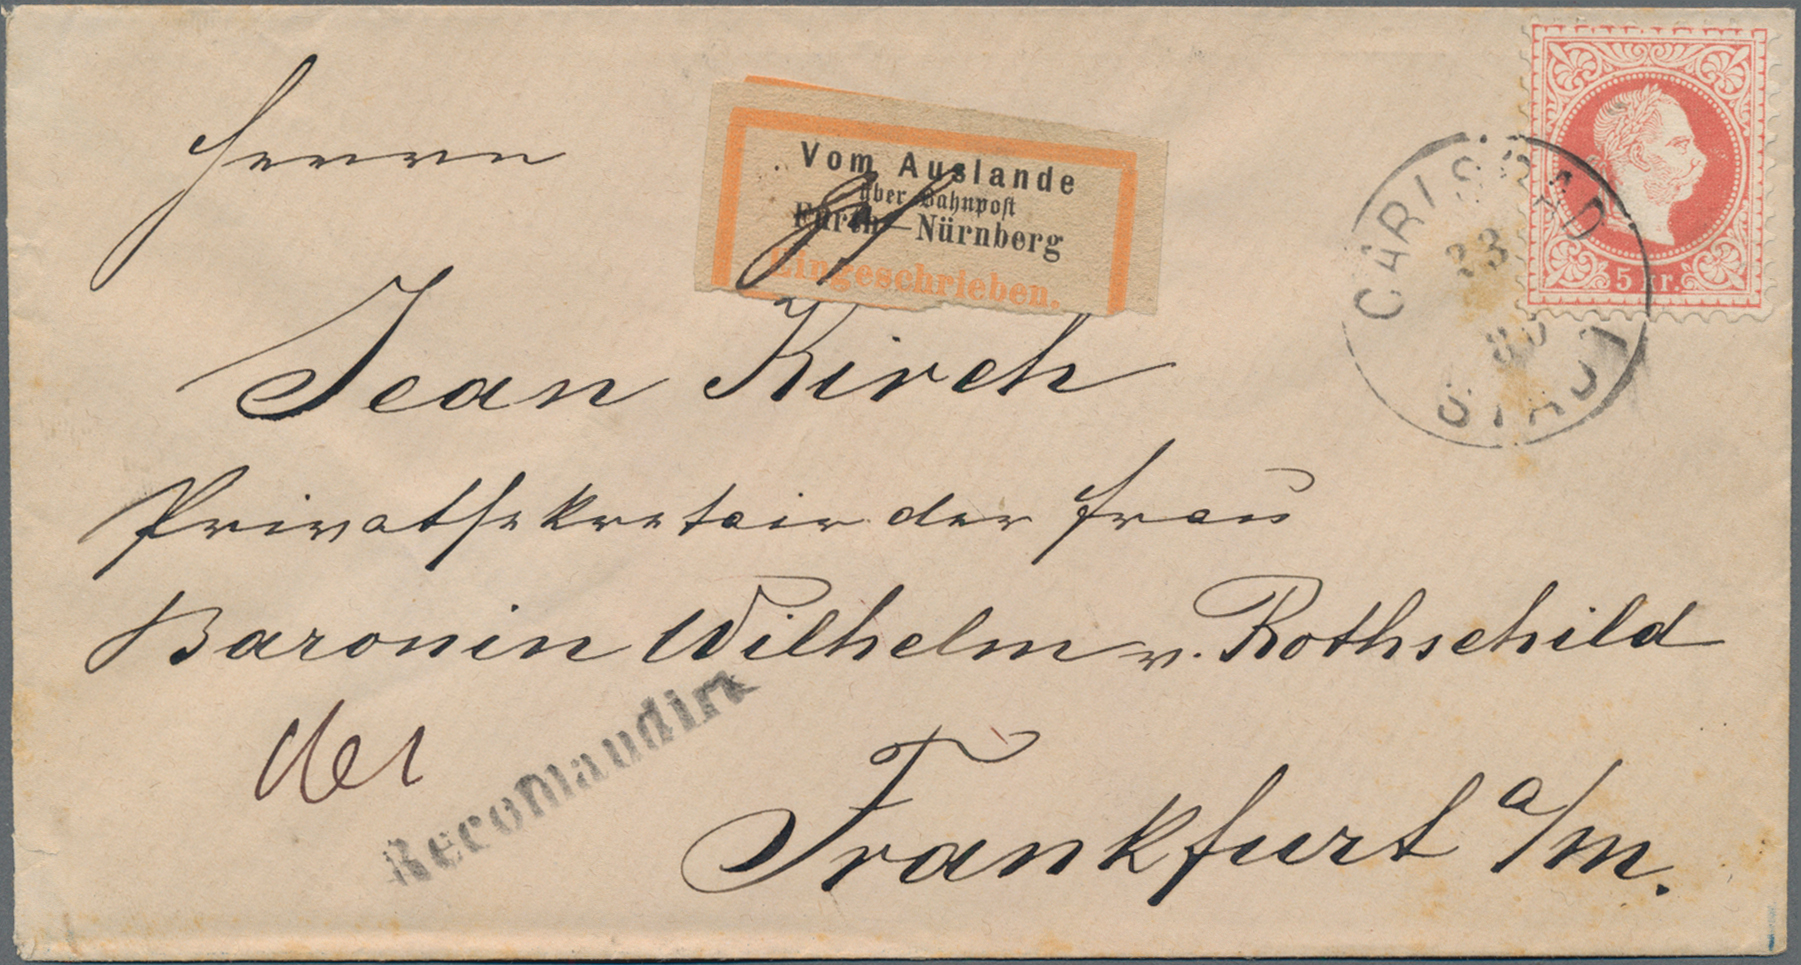 Herrn
Vom Auslande
über Bahnpost
Furth—Nürnberg
Eingeschrieben.
5 kr.
CARLSBAD
23
80
STADT
Jean Kirch
Privatsekretair der Frau
Baronin Wilhelm v. Rothschild
Recommandirt
Frankfurt a/m.